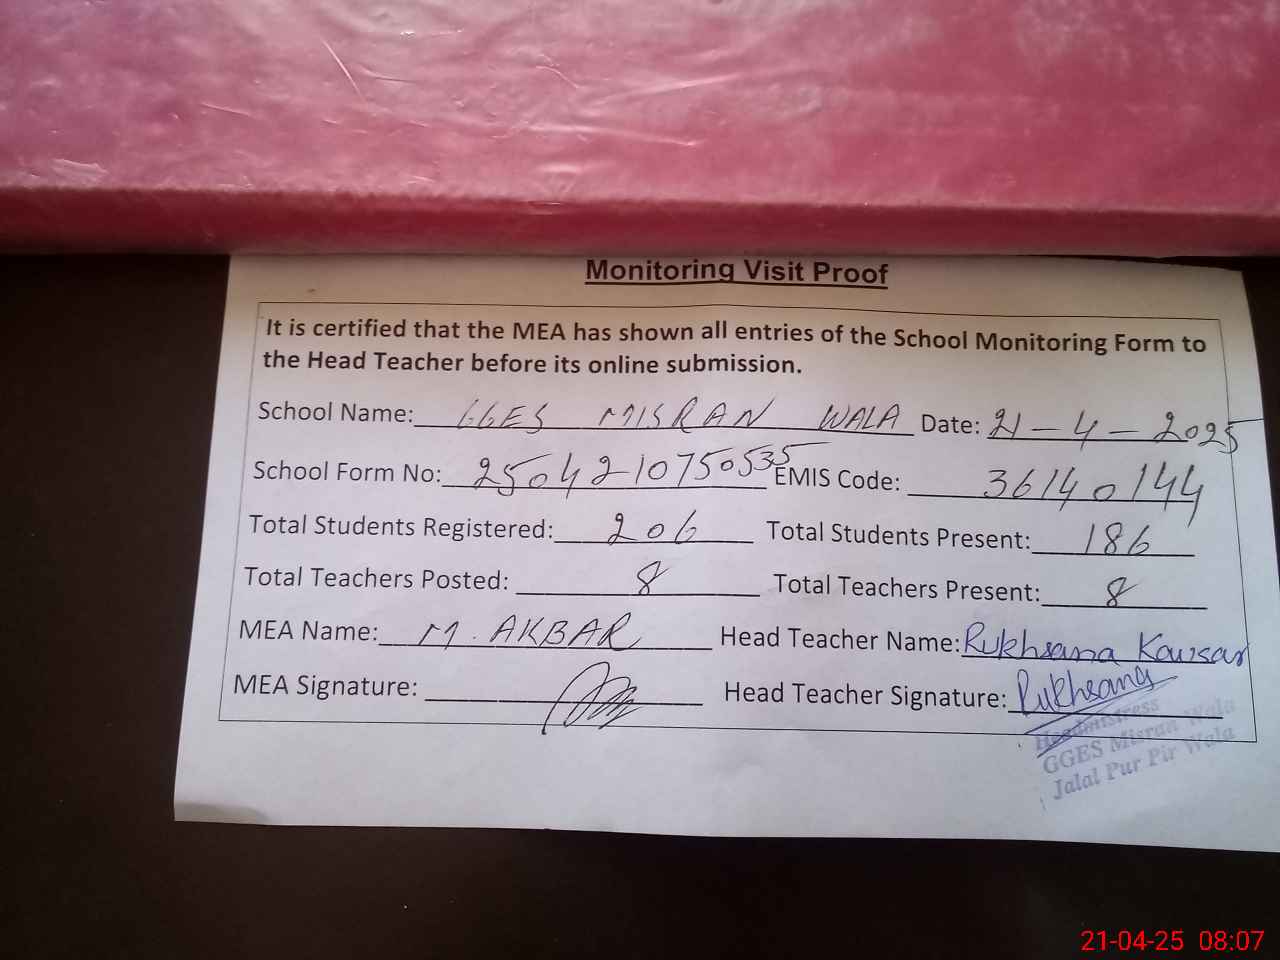 Monitoring Visit Proof
It is certified that the MEA has shown all entries of the School Monitoring Form to
the Head Teacher before its online submission.
School Name: GGES MISRAN WALA Date: 21-4-2025
School Form No: 2504210750535 EMIS Code: 36140144
Total Students Registered: 206 Total Students Present: 186
Total Teachers Posted: 8 Total Teachers Present: 8
MEA Name: M. AKBAR Head Teacher Name: Rukhsana Kousar
MEA Signature: Head Teacher Signature: Rukhsana
Headmistress
GGES Misran Wala
Jalal Pur Pir Wala
21-04-25 08:07